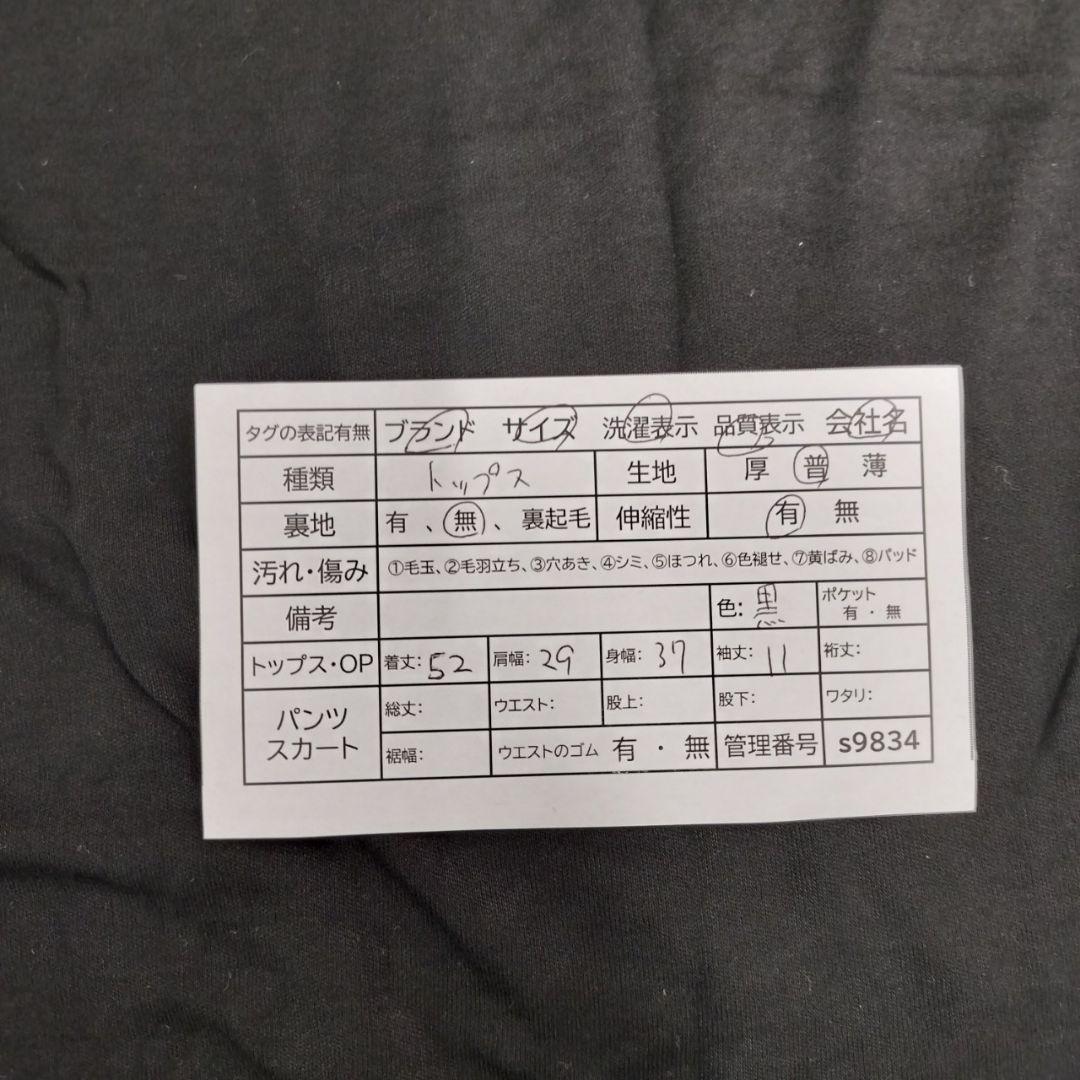 タグの表記有無 ブランド サイズ 洗濯表示 品質表示 会社名
種類 トップス 生地 厚 普 薄
裏地 有 、無 、 裏起毛 伸縮性 有 無
汚れ・傷み ①毛玉、②毛羽立ち、③穴あき、④シミ、⑤ほつれ、⑥色褪せ、⑦黄ばみ、⑧パッド
備考 色: 黒 ポケット
有 ・ 無
トップス・OP 着丈: 52 肩幅: 29 身幅: 37 袖丈: 11 裄丈:
パンツ
スカート
総丈: ウエスト: 股上: 股下: ワタリ:
裾幅: ウエストのゴム 有 ・ 無 管理番号 s9834